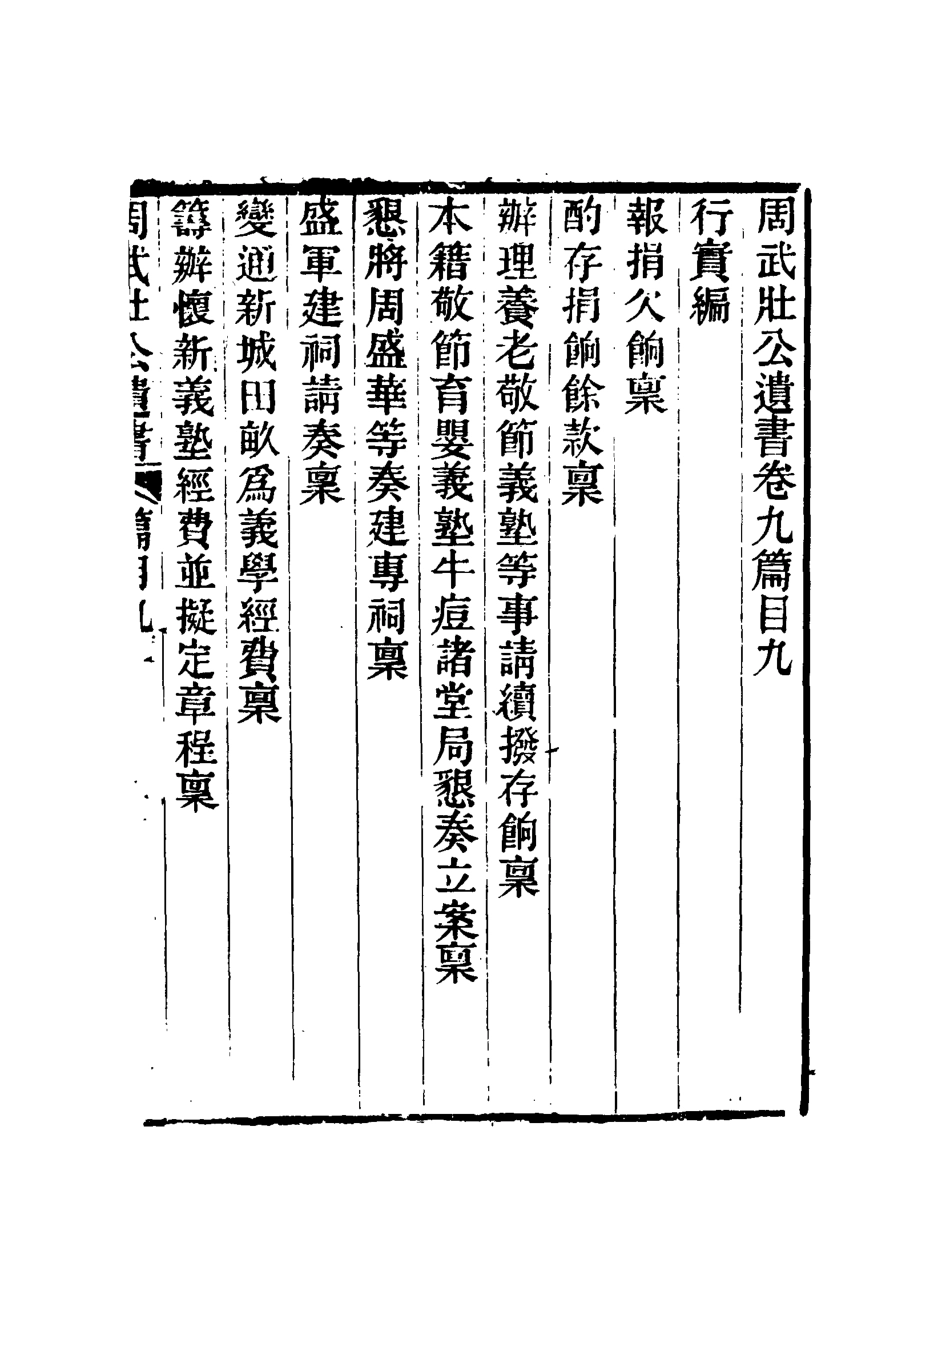 周武壯公遺書卷九篇目九
行實編
報捐欠餉稟
酌存捐餉餘款稟
辦理養老敬節義塾等事請續撥存餉稟
本籍敬節育嬰義塾牛痘諸堂局懇奏立案稟
懇將周盛華等奏建專祠稟
盛軍建祠請奏稟
變通新城田畝爲義學經費稟
籌辦懷新義塾經費並擬定章程稟
周武壯公遺書 篇目九